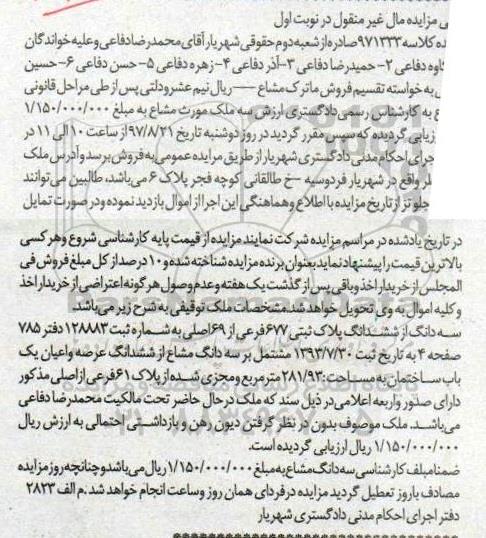 ی مزایده مال غیر منقول در نوبت اول
ده کلاسه ۹۷۱۳۳۳ صادره از شعبه دوم حقوقی شهریار آقای محمدرضا دفاعی و علیه خواندگان
کاوه دفاعی ۲- حمیدرضا دفاعی ۳- آذر دفاعی ۴- زهره دفاعی ۵- حسن دفاعی ۶- حسین
ی به خواسته تقسیم فروش ماترک مشاع ---- ریال نیم عشر دولتی پس از طی مراحل قانونی
ع به کارشناس رسمی دادگستری ارزش سه ملک مورث مشاع به مبلغ ۱/۱۵۰/۰۰۰/۰۰۰
رزیابی گردیده که سپس مقرر گردید در روز دوشنبه تاریخ ۹۷/۸/۲۱ از ساعت ۱۰ الی ۱۱ در
جرای احکام مدنی دادگستری شهریار از طریق مزایده عمومی به فروش برسد و آدرس ملک
ظر واقع در شهریار فردوسیه -خ طالقانی کوچه فجر پلاک ۶ می باشد، طالبین می توانند
جلوتر از تاریخ مزایده با اطلاع و هماهنگی این اجرا از اموال بازدید نموده و در صورت تمایل
در تاریخ یادشده در مراسم مزایده شرکت نمایند مزایده از قیمت پایه کارشناسی شروع و هر کسی
بالاترین قیمت را پیشنهاد نماید بعنوان برنده مزایده شناخته شده و ۱۰ درصد از کل مبلغ فروش فی
المجلس از خریدار اخذ و باقی پس از گذشت یک هفته و عدم وصول هرگونه اعتراضی از خریدار اخذ
و کلیه اموال به وی تحویل خواهد شد. مشخصات ملک توقیفی به شرح زیر می باشد.
سه دانگ از ششدانگ پلاک ثبتی ۶۷۷ فرعی از ۶۹ اصلی به شماره ثبت ۱۲۸۸۸۳ دفتر ۷۸۵
صفحه ۴ به تاریخ ثبت ۱۳۹۳/۷/۳۰ مشتمل بر سه دانگ مشاع از ششدانگ عرصه و اعیان یک
باب ساختمان به مساحت: ۲۸۱/۹۳ متر مربع و مجزی شده از پلاک ۶۱ فرعی از اصلی مذکور
دارای صدور و اربعه اعلامی در ذیل سند که ملک در حال حاضر تحت مالکیت محمدرضا دفاعی
می باشد. ملک موصوف بدون در نظر گرفتن دیون رهن و بازداشتی احتمالی به ارزش ریال
۱/۱۵۰/۰۰۰/۰۰۰ ریال ارزیابی گردیده است.
ضمنا مبلغ کارشناسی سه دانگ مشاع به مبلغ ۱/۱۵۰/۰۰۰/۰۰۰ ریال می باشد و چنانچه روز مزایده
مصادف با روز تعطیل گردید مزایده در فردای همان روز و ساعت انجام خواهد شد. م الف ۲۸۲۳
دفتر اجرای احکام مدنی دادگستری شهریار